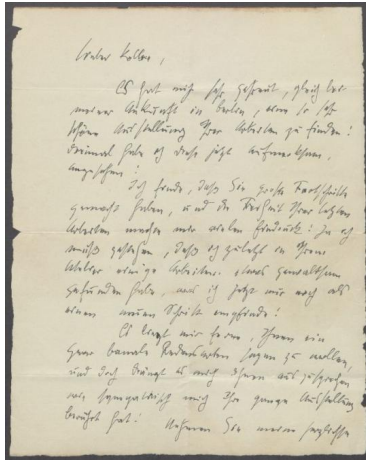 Lieber Kolbe,
Es hat mich sehr gefreut, gleich bei
meiner Ankunft in Berlin, eine so sehr
schöne Ausstellung Ihrer Arbeiten zu finden!
Dreimal habe ich diese jetzt aufmerksam
angesehen!
Ich finde, daß Sie große Fortschritte
gemacht haben, und die Freiheit Ihrer letzten
Arbeiten machen mir vielen Eindruck! Ja ich
muß gestehen, daß ich zuletzt in Ihrem
Atelier einige Arbeiten etwas gewaltsam
gefunden habe, was ich jetzt nur noch als
einen neuen Schritt empfinde!
Es liegt mir fern, Ihnen ein
paar banale Redensarten sagen zu wollen,
und doch drängt es mich Ihnen auszusprechen
wie sympathisch mich Ihre ganze Ausstellung
berührt hat! Nehmen Sie meine herzlichsten